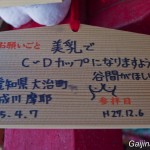 お願いごと 美乳で
C~Dカップになりますように
谷間がほしい
愛知県大治町
参拝日
H29.12.6
5.4.7
Gaijin